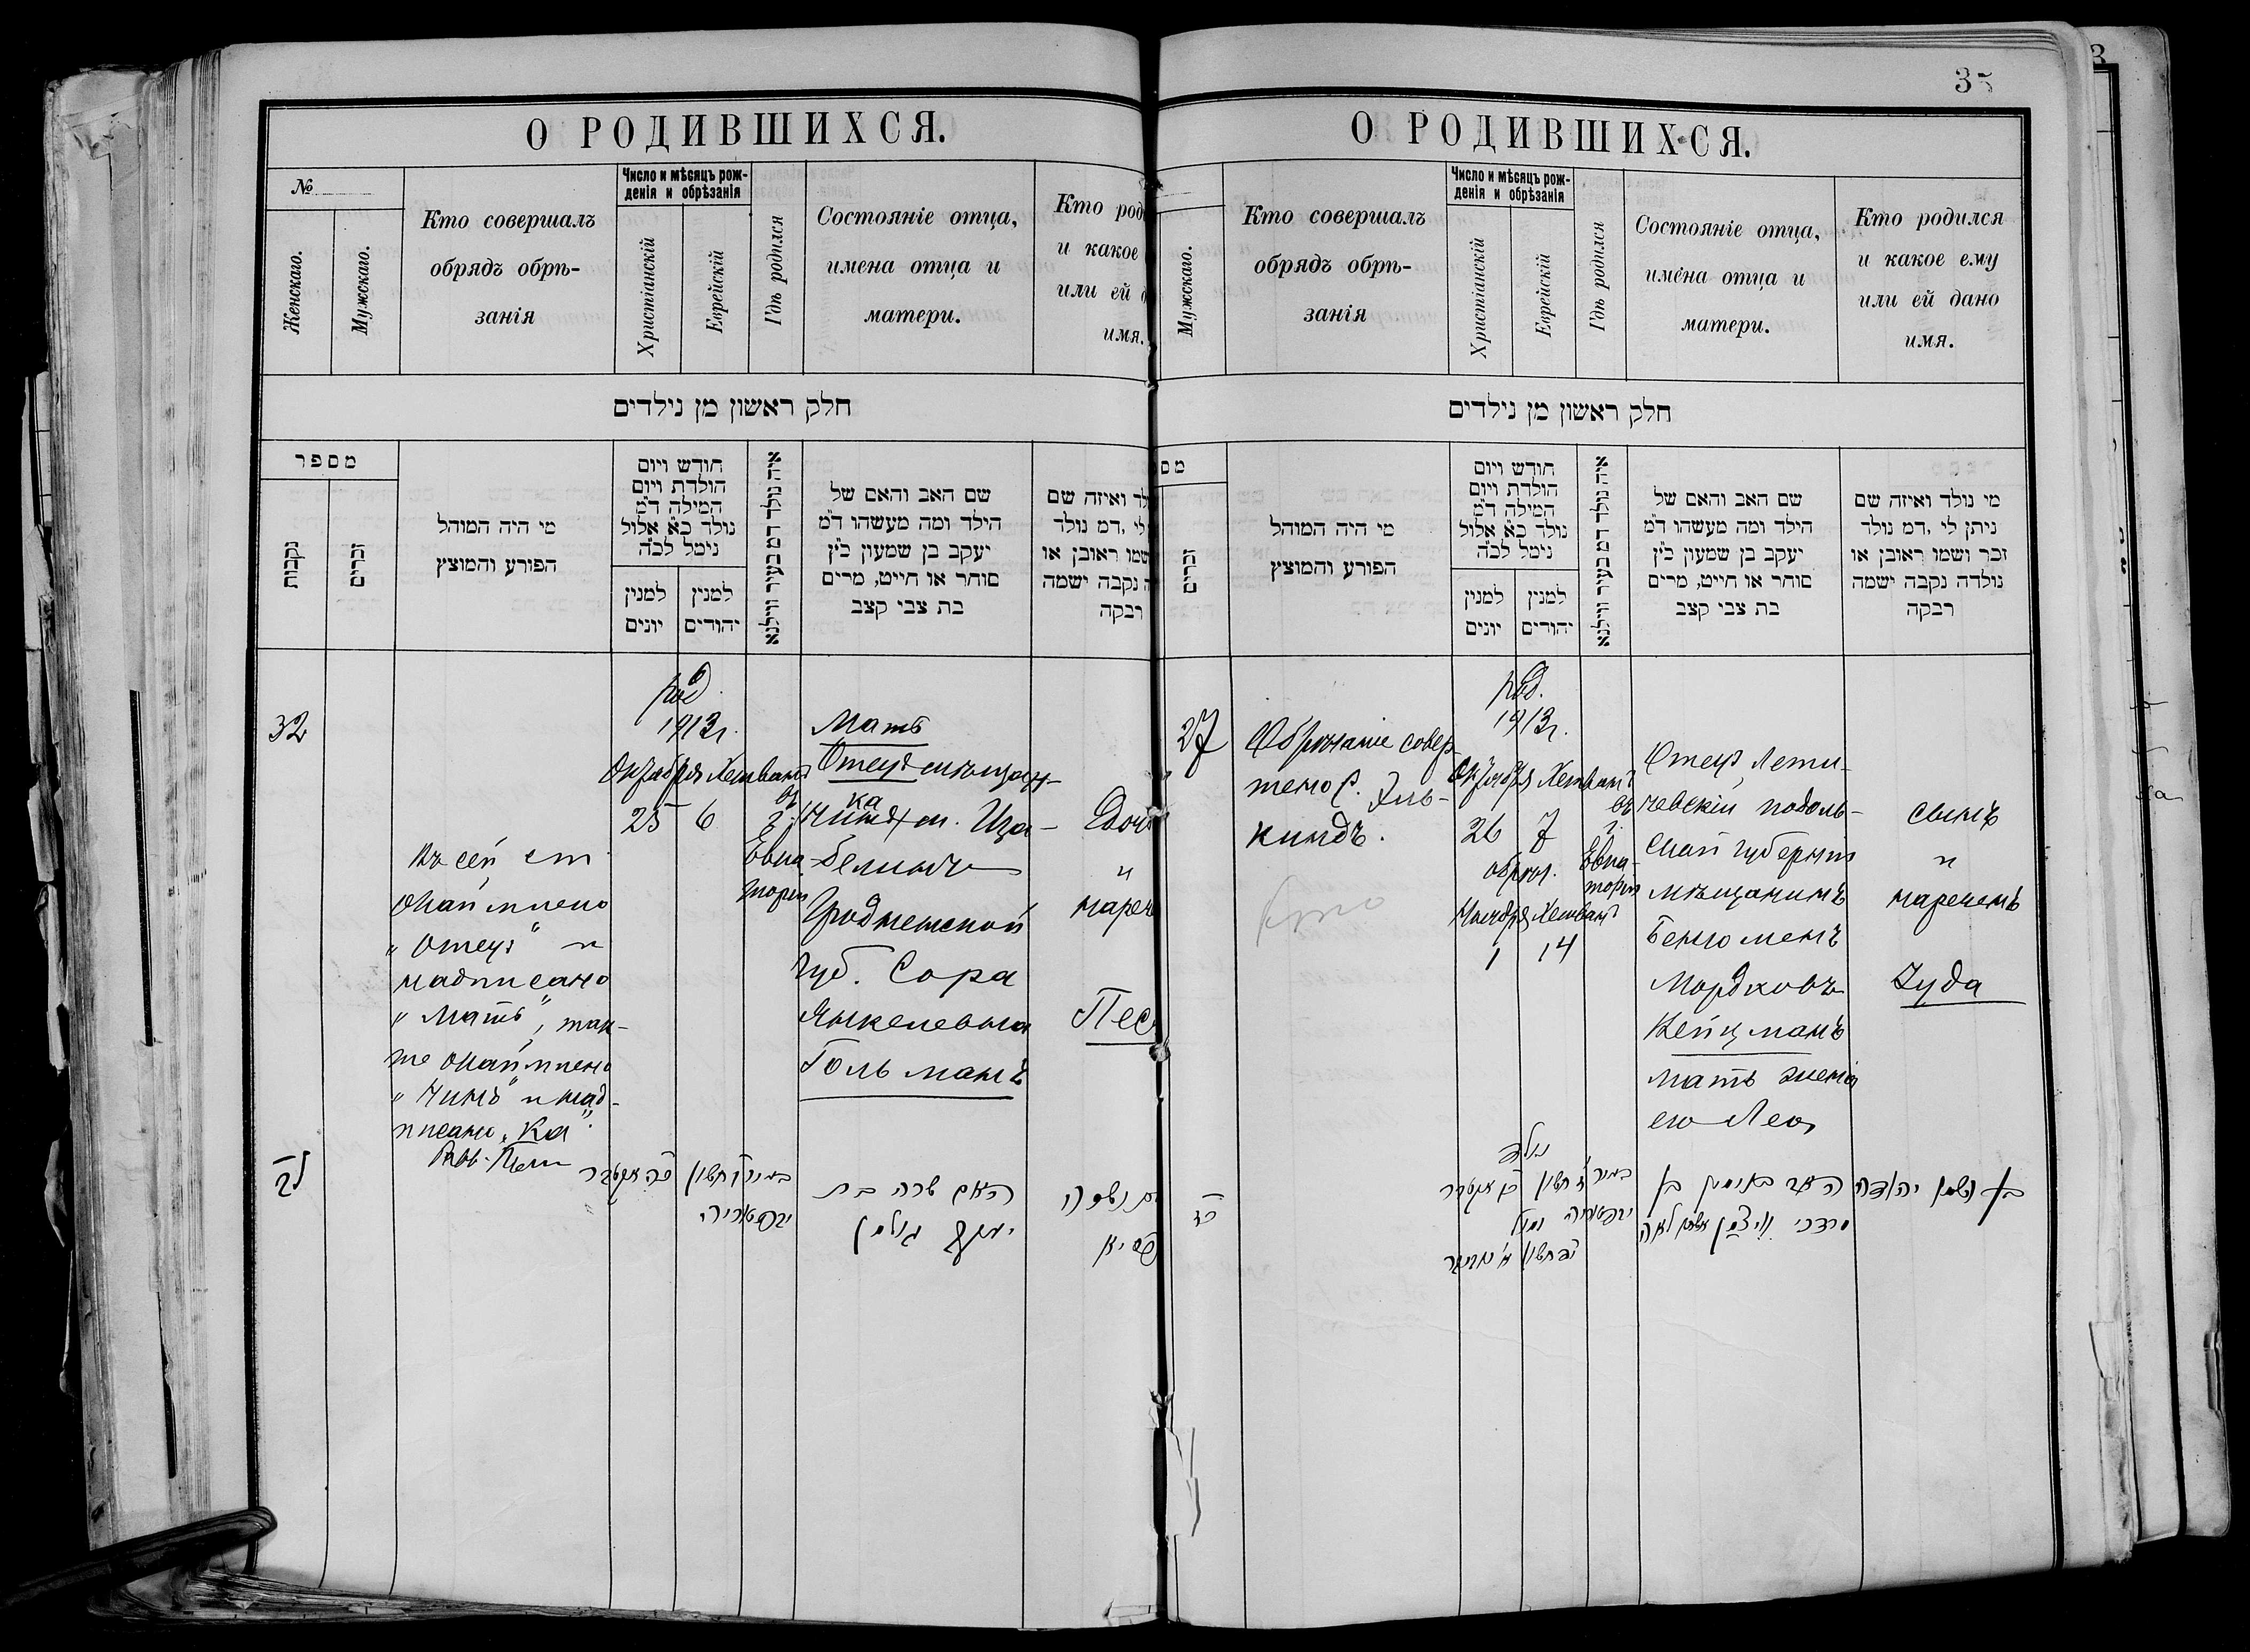 О РОДИВШИХСЯ.
№
Женскаго.
Мужскаго.
Кто совершалъ
обрядъ обрѣ-
занія
Число и мѣсяцъ рож-
денія и обрѣзанія
Христіанскій
Еврейскій
Гдѣ родился
Состояніе отца,
имена отца и
матери.
Кто род
и какое
или ей д
имя.
חלק ראשון מן נילדים
מספר
נקבות
זכרים
מי היה המוהל
הפורע והמוצץ
חודש ויום
הולדת ויום
המילה ד״מ
נולד כ״א אלול
נימל לכ״ה
למנין
יונים
למנין
יהודים
איה נולד דמ בעיר ווילנא
שם האב והאם של
הילד ומה מעשהו ד״מ
יעקב בן שמעון כ״ץ
סוחר או חייט, מרים
בת צבי קצב
לד ואיזה שם
לי ,דמ נולד
שמו ראובן או
ה נקבה ישמה
רבקה
32
Въ сей ст
окаймлено
„Отецъ“ и
надписано
„Мать“, так-
же окаймлено
„нинъ“ и над-
писано „ка“.
род.
1913 г.
Октября Хешванъ
25 6
въ
г.
Евпа-
торіи
Мать
Отецъ мѣщан-
ка
нинъ м. Иза-
белинъ
Гродненской
губ. Сора
Янкелевна
Гольманъ
Дочь
и
нареч
Пес
לב
האם שרה בת
יעקב גולמן
О РОДИВШИХСЯ.
35
Мужскаго.
Кто совершалъ
обрядъ обрѣ-
занія
Число и мѣсяцъ рож-
денія и обрѣзанія
Христіанскій
Еврейскій
Гдѣ родился
Состояніе отца,
имена отца и
матери.
Кто родился
и какое ему
или ей дано
имя.
חלק ראשון מן נילדים
מס
זכרים
מי היה המוהל
הפורע והמוצץ
חודש ויום
הולדת ויום
המילה ד״מ
נולד כ״א אלול
נימל לכ״ה
למנין
יונים
למנין
יהודים
איה נולד דמ בעיר ווילנא
שם האב והאם של
הילד ומה מעשהו ד״מ
יעקב בן שמעון כ״ץ
סוחר או חייט, מרים
בת צבי קצב
מי נולד ואיזה שם
ניתן לי ,דמ נולד
זכר ושמו ראובן או
נולדה נקבה ישמה
רבקה
27
Обрѣзаніе совер-
шено Р. Зль-
киндъ.
род.
1913 г.
Октября Хешванъ
26 7
обрѣз.
Ноября Хешванъ
1 14
въ
г.
Евпа-
торіи
Отецъ Лети-
чевскій подоль-
ской губерніи
мѣщанинъ
Беньюменъ
Мордковъ
Вейцманъ
мать жена
его Лея
сынъ
и
нареченъ
Іуда
כז
נולד
האב בנימין בן
מרדכי וויצמן אשתו לאה
בן ושמו יהודה